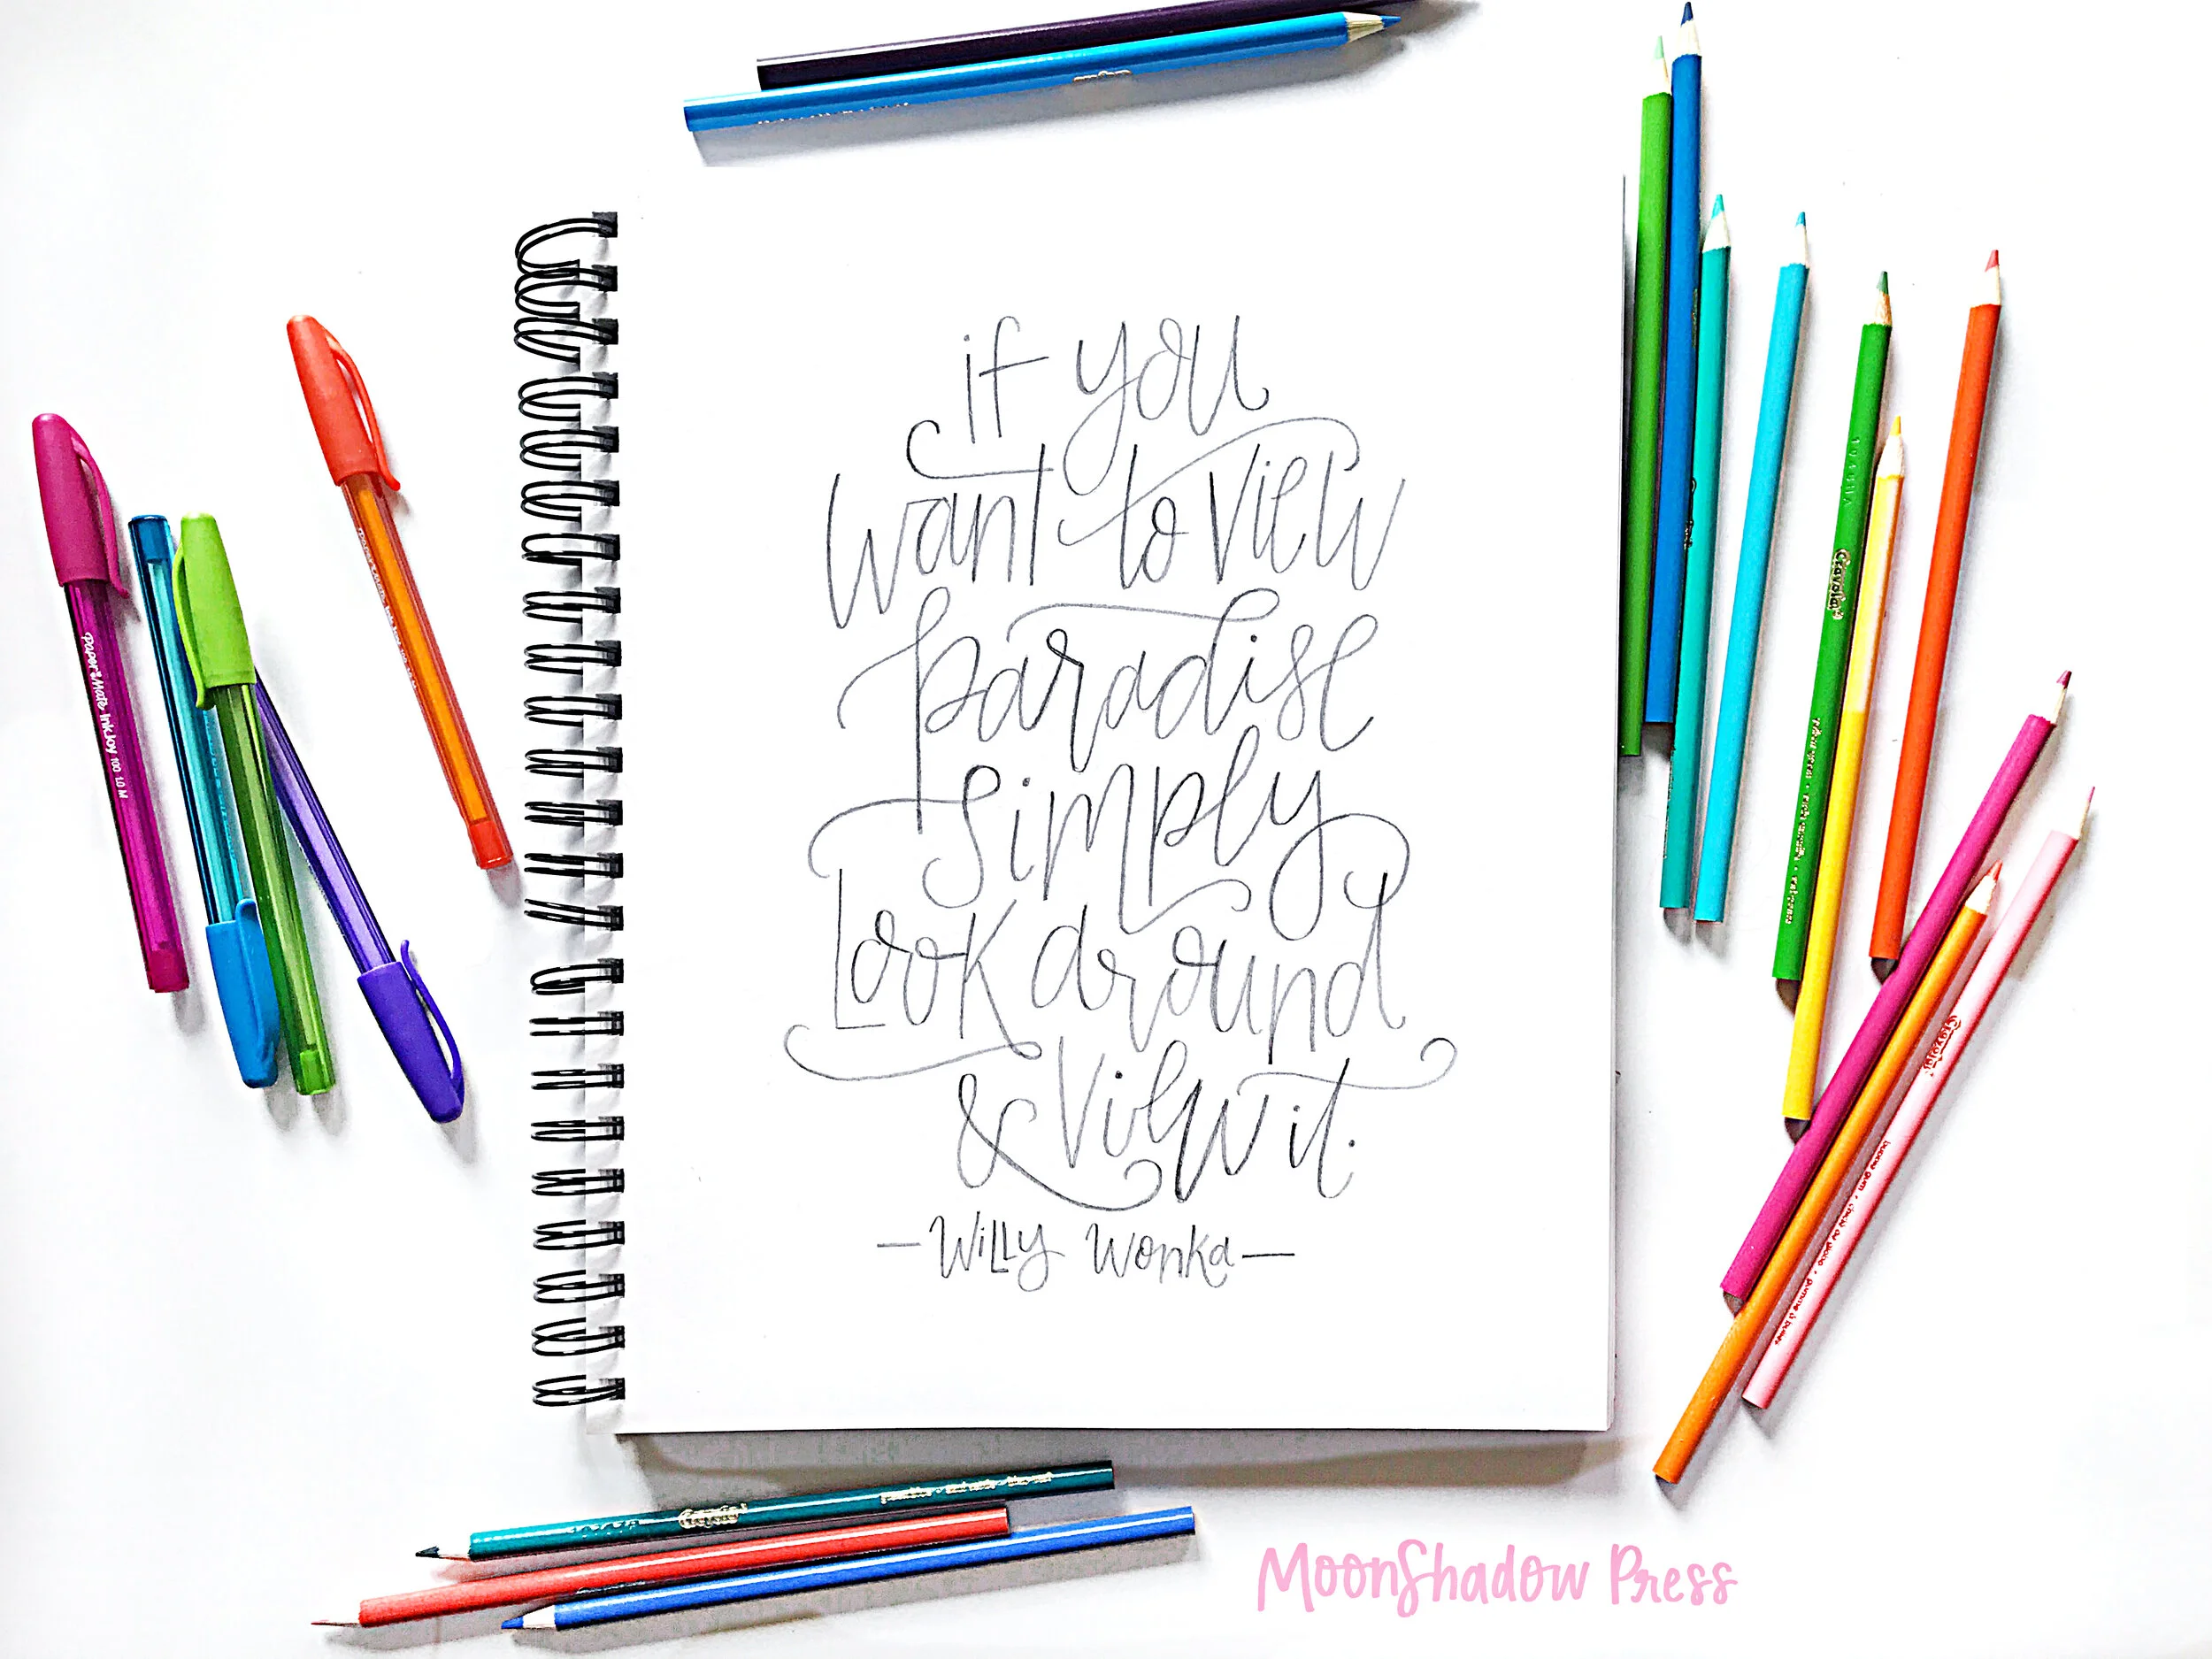 if you
want to view
paradise
simply
Look around
& view it.
— Willy Wonka —
Paper Mate InkJoy 100 1.0 M
Crayola
Crayola
Crayola
MoonShadow Press